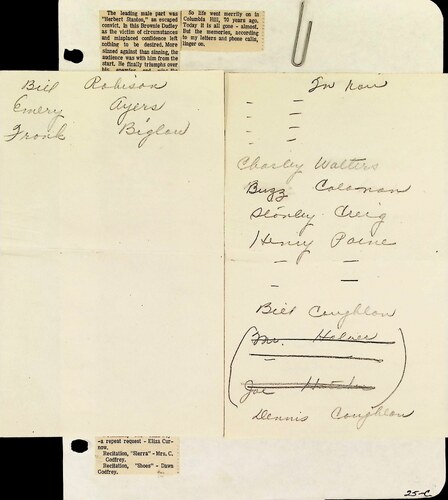 The leading male part was
"Herbert Stanton," an escaped
convict. In this Brownie Dudley
as the victim of circumstances
and misplaced confidence left
nothing to be desired. More
sinned against than sinning, the
audience was with him from the
start. He finally triumphs over
So life went merrily on in
Columbia Hill, 70 years ago.
Today it is all gone - almost.
But the memories, according
to my letters and phone calls,
linger on.
Bill Robison
Emery Ayers
Frank Biglow
Charley Walters
Buzz Calanan
Stanley Craig
Henry Paine
Bill Coughlan
Joe
Dennis Coughlan
-a repeat request - Eliza Cur-
now.
Recitation, "Sierra" - Mrs. C.
Godfrey.
Recitation, "Shoes" - Dawn
Godfrey.
25-C